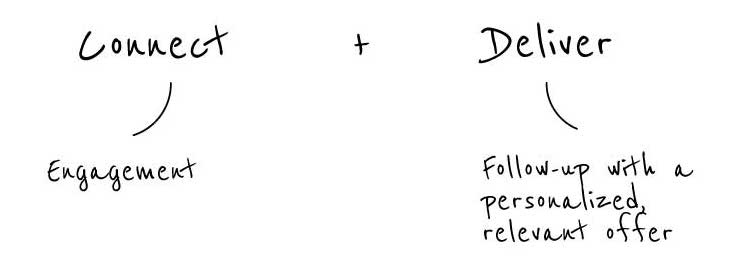 Connect + Deliver
Engagement
Follow-up with a
personalized,
relevant offer